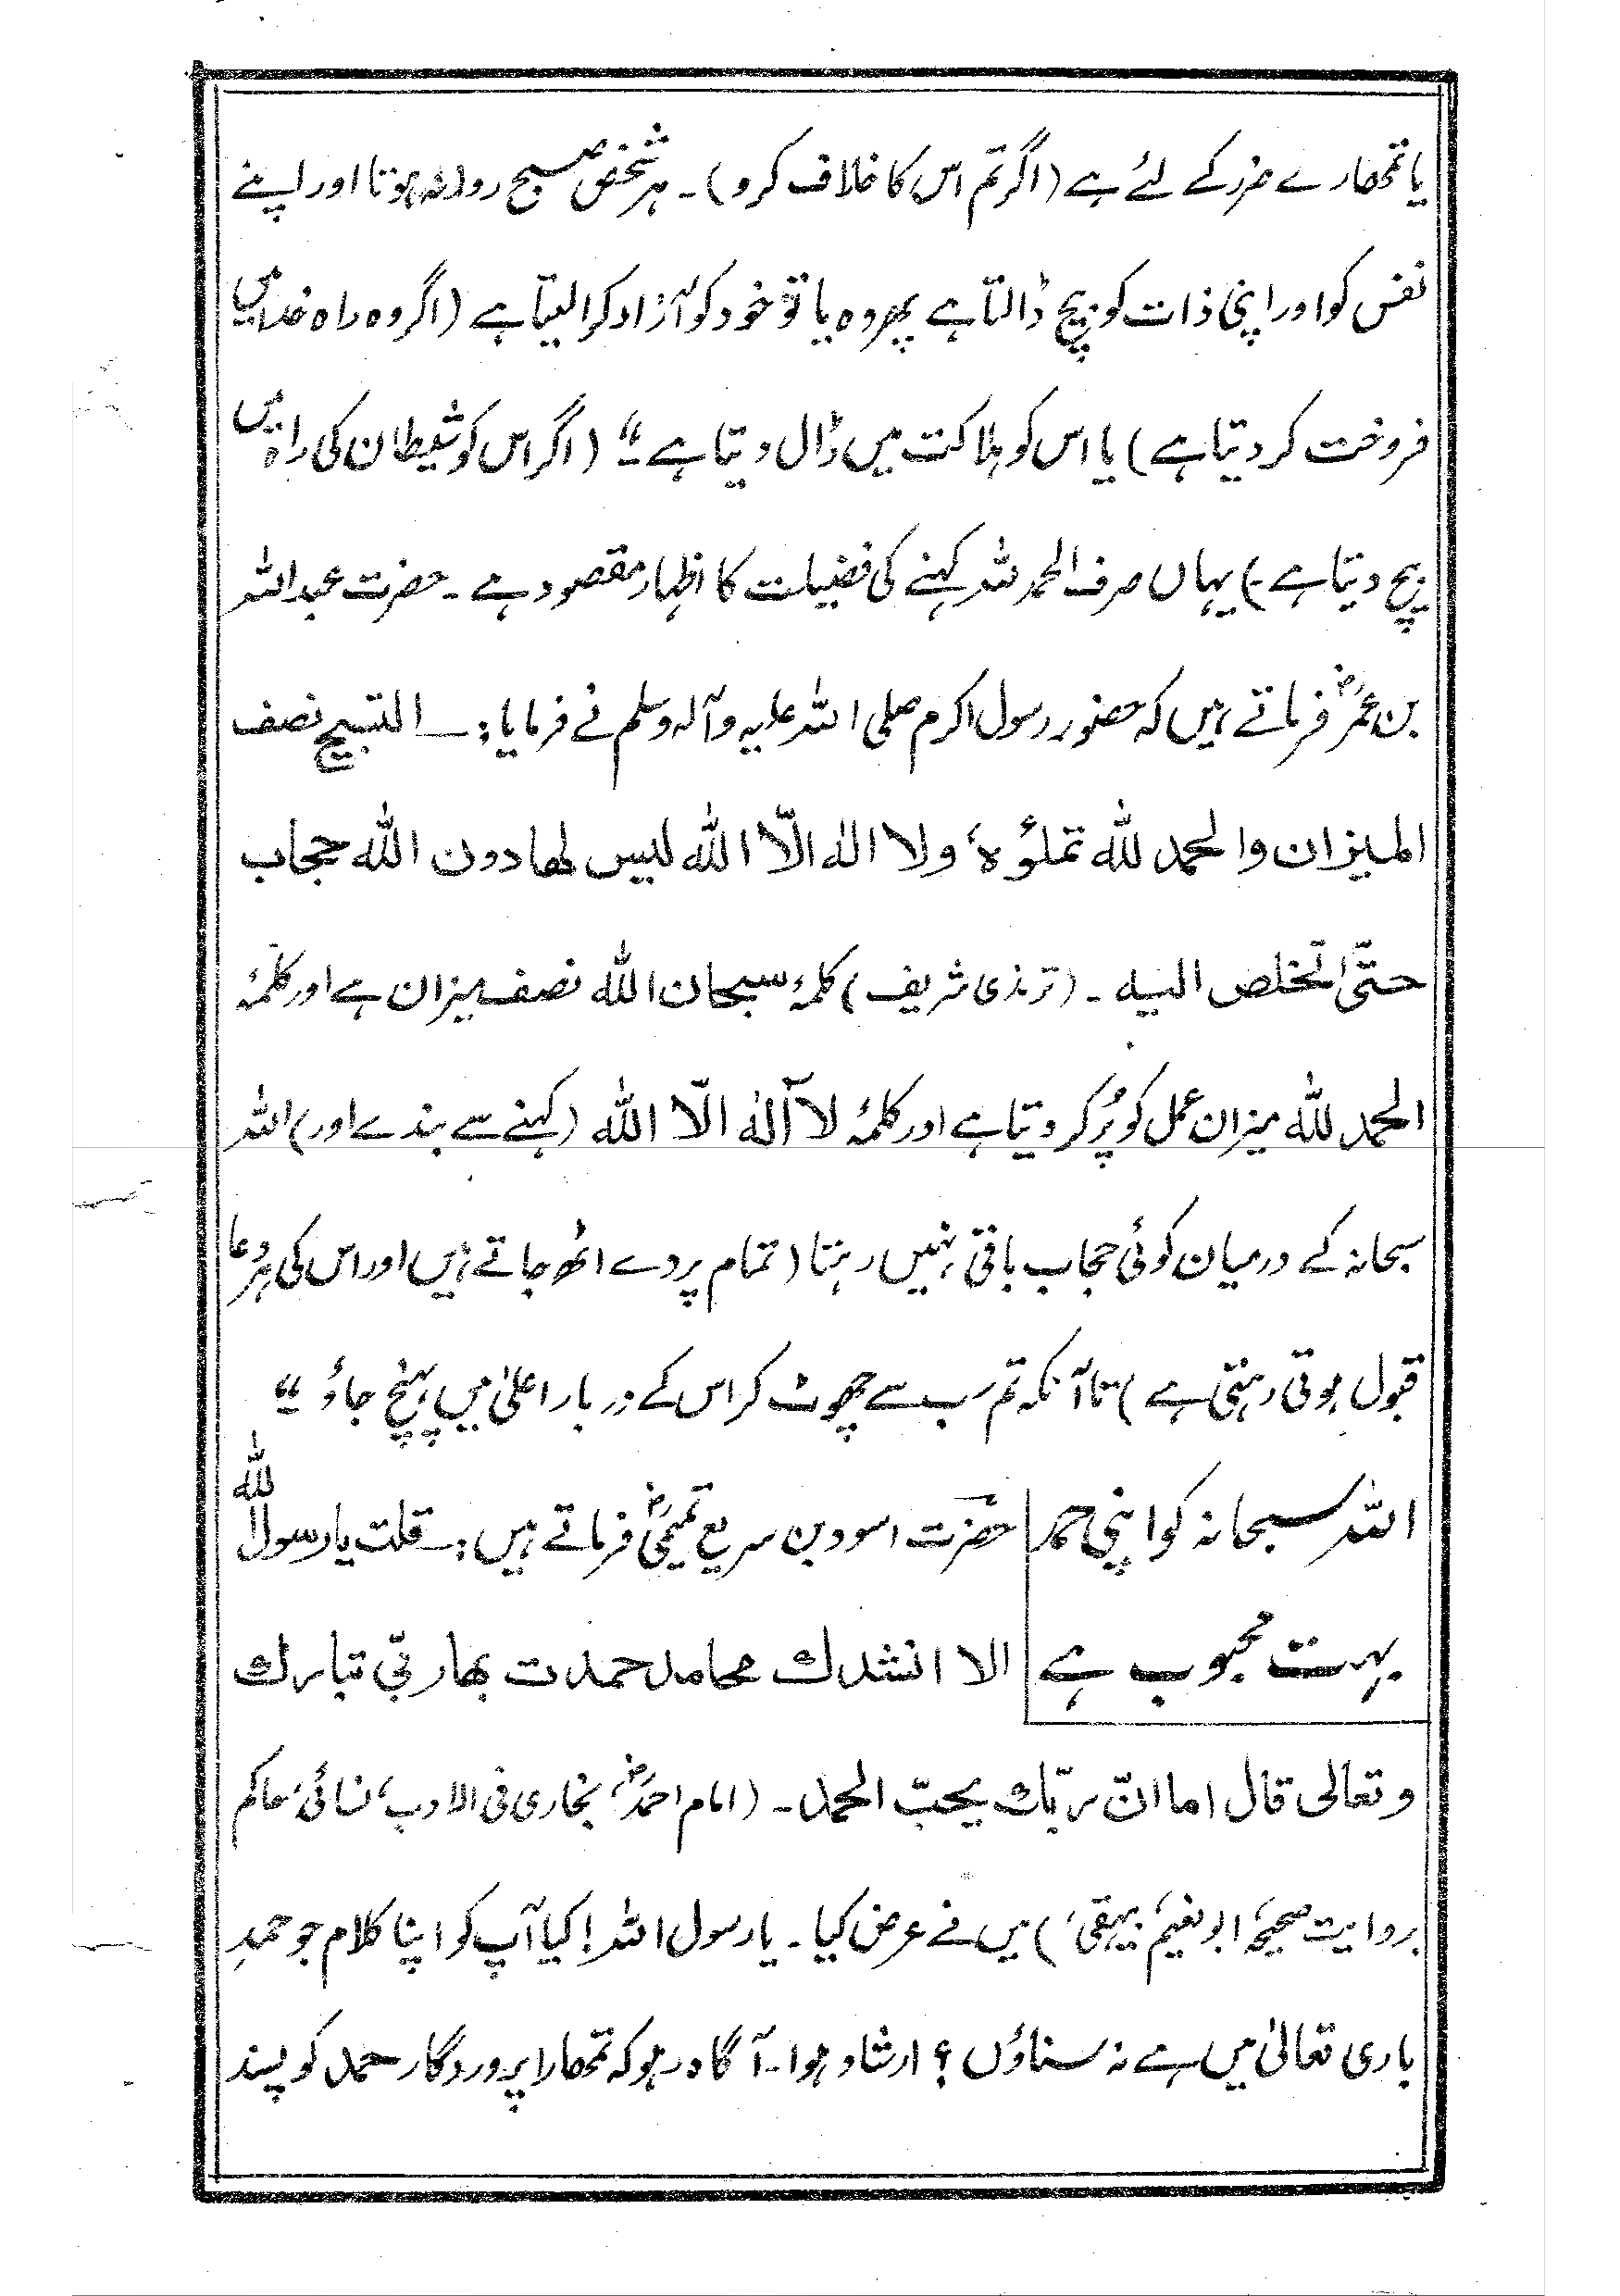 یا تمھارے ضرر کے لئے ہے (اگر تم اس کا خلاف کرو)۔ ہر شخص صبح روانہ ہوتا اور اپنے
نفس کو اور اپنی ذات کو بیچ ڈالتا ہے پھر وہ یا تو خود کو آزاد کرا لیتا ہے (اگر وہ راہ خدا میں
فروخت کر دیتا ہے) یا اس کو ہلاکت میں ڈال دیتا ہے۔" (اگر اس کو شیطان کی راہ میں
بیچ دیتا ہے۔) یہاں صرف الحمد للہ کہنے کی فضیلت کا اظہار مقصود ہے۔ حضرت عبد اللہ
بن عمرؓ فرماتے ہیں کہ حضور رسول اکرم صلی اللہ علیہ وآلہ وسلم نے فرمایا:۔ التسبیح نصف
المیزان والحمد للہ تملؤہ، ولا الٰہ الّا اللہ لیس لھا دون اللہ حجاب
حتّٰی تخلص الیہ۔ (ترمذی شریف) کلمۂ سبحان اللہ نصف میزان ہے اور کلمۂ
الحمد للہ میزان عمل کو پُر کر دیتا ہے اور کلمۂ لا آلٰہ الّا اللہ (کہنے سے بندے اور) اللہ
سبحانہ کے درمیان کوئی حجاب باقی نہیں رہتا (تمام پردے اٹھ جاتے ہیں اور اس کی ہر دعا
قبول ہوتی رہتی ہے) تا آنکہ تم سب سے چھوٹ کر اس کے دربار اعلیٰ میں پہنچ جاؤ۔"
اللہ سبحانہ کو اپنی حمد
بہت محبوب ہے
حضرت اسود بن سریع تمیمیؓ فرماتے ہیں:۔ قلت یا رسول اللہ
الا انشدك محامد حمدت بھا ربّی تبارك
وتعالی قال اما انّ ربّك یحبّ الحمد۔ (امام احمدؒ، بخاری فی الادب، نسائی، حاکم
بروایت صحیحہ، ابو نعیم، بیہقی،) میں نے عرض کیا۔ یا رسول اللہ! کیا آپ کو اپنا کلام جو حمدِ
باری تعالیٰ میں ہے نہ سناؤں؟ ارشاد ہوا۔ آگاہ رہو کہ تمھارا پروردگار حمد کو پسند